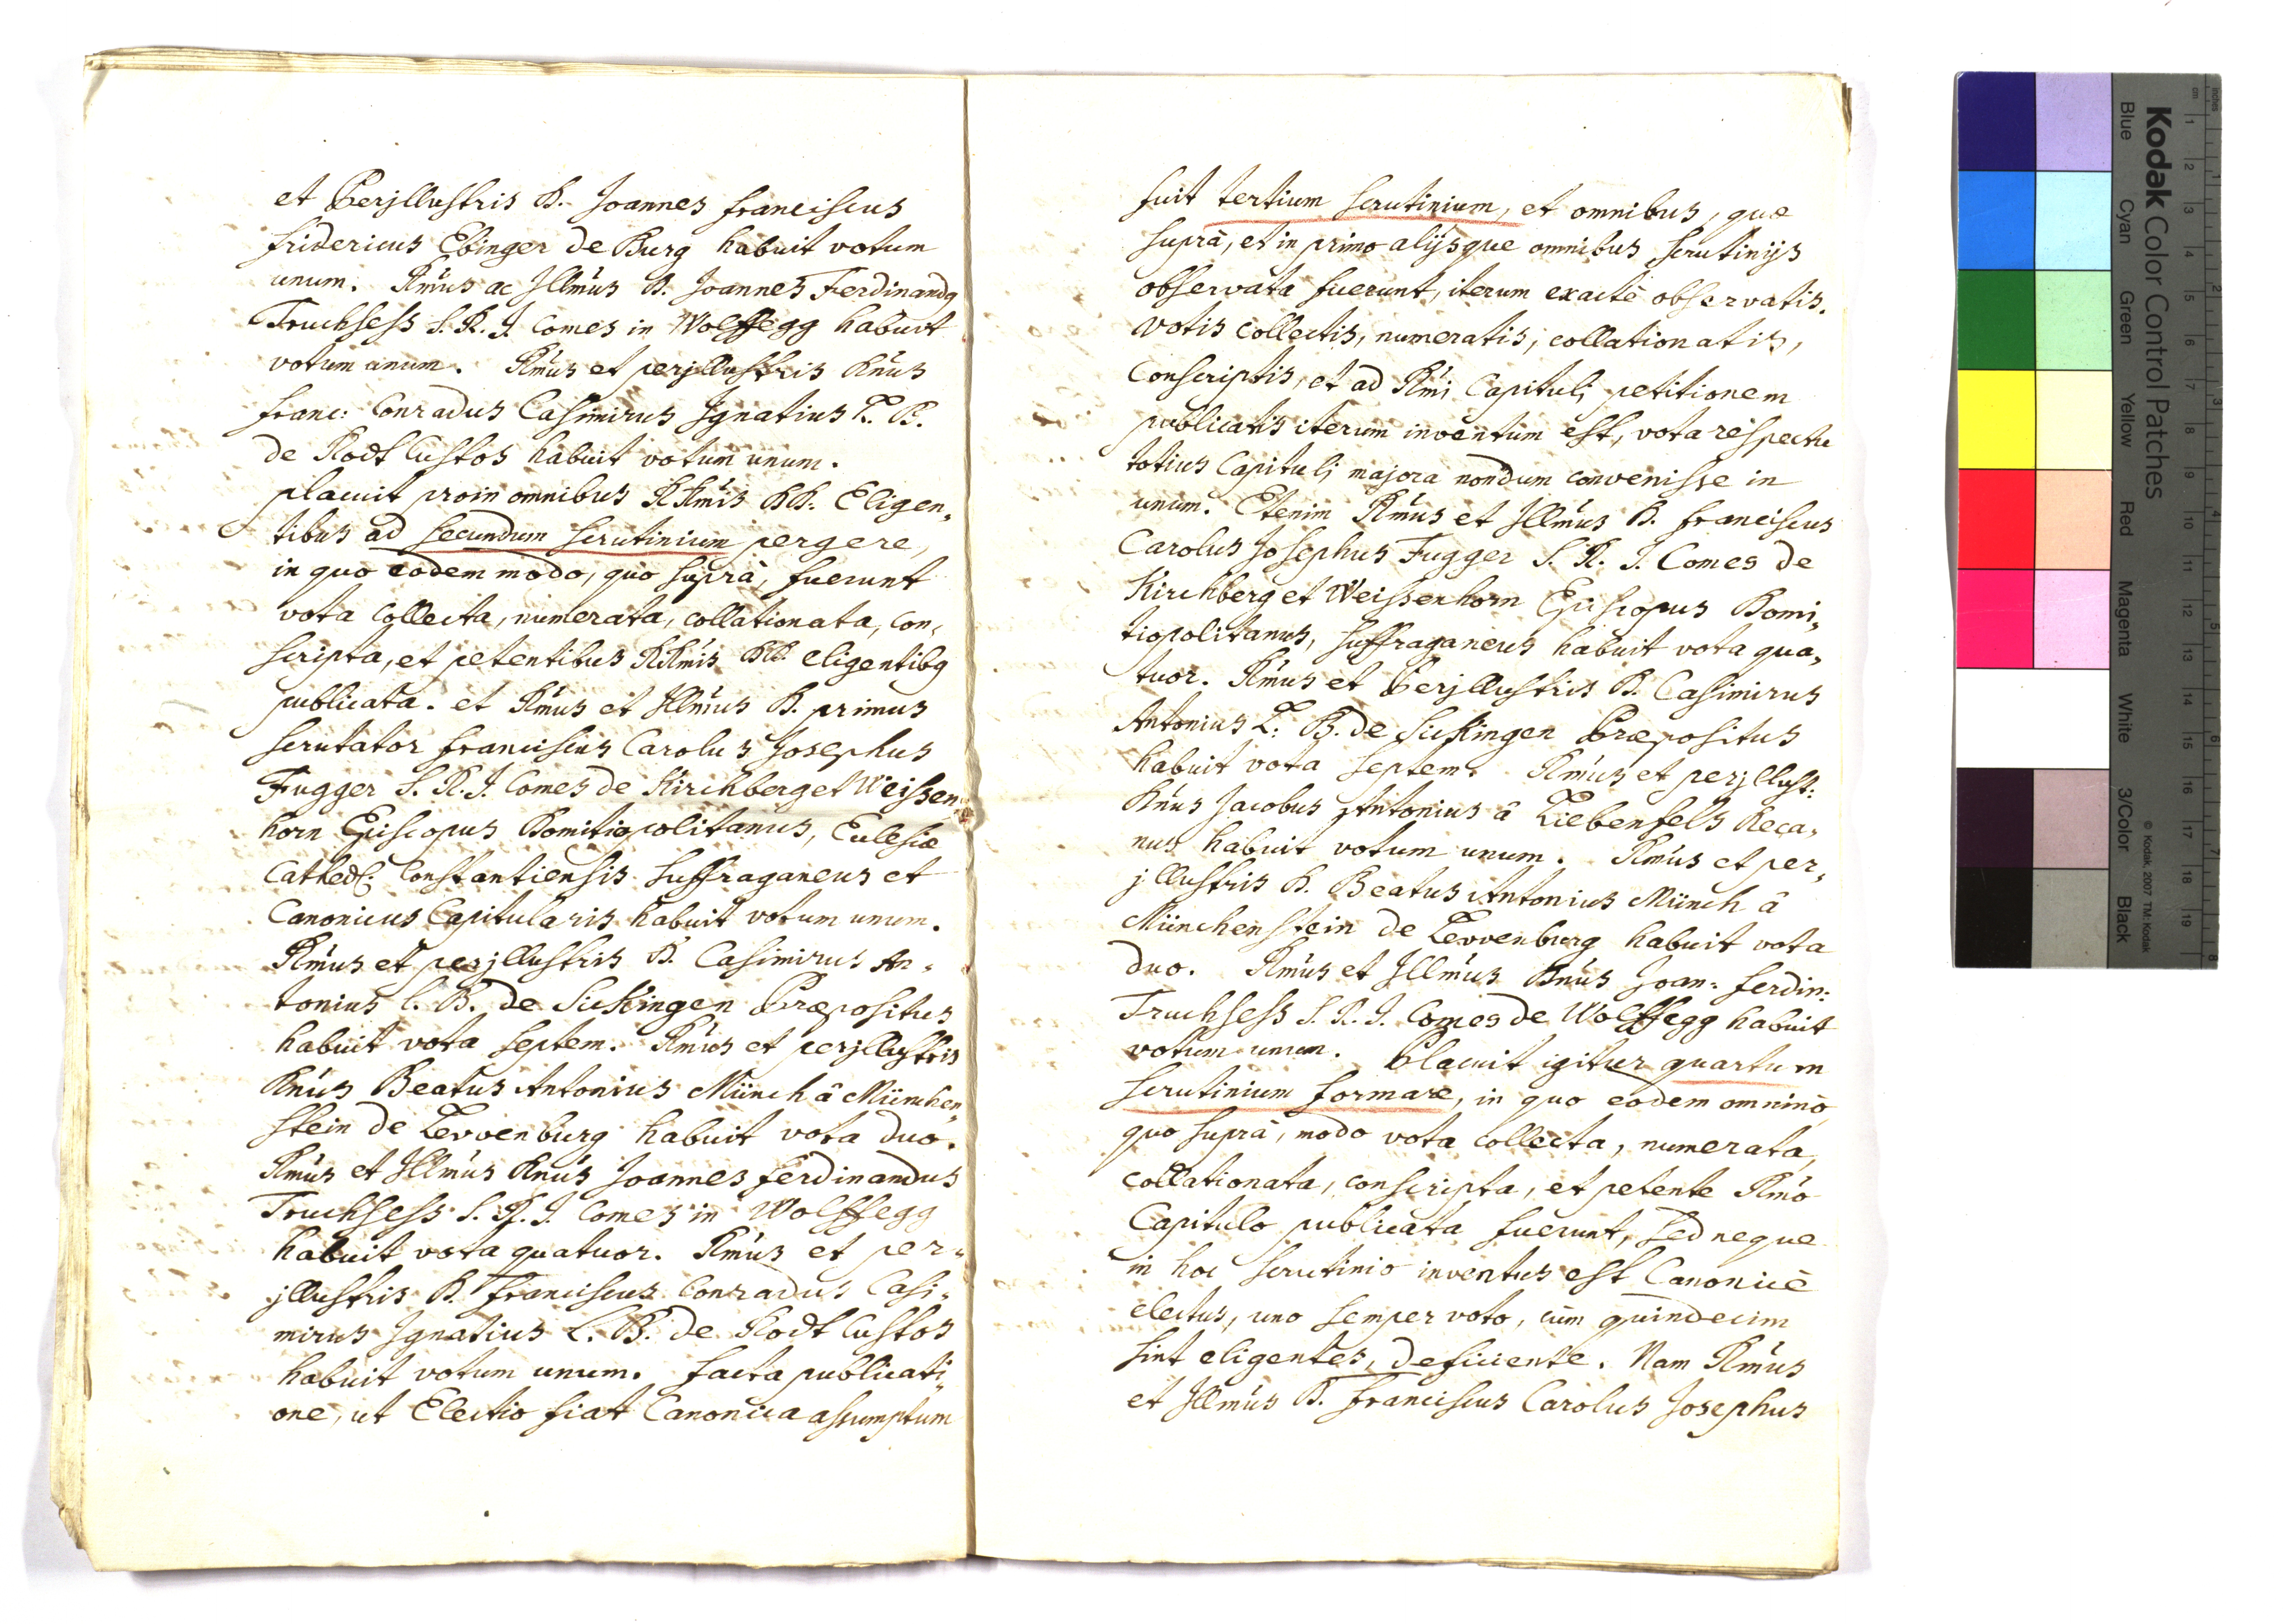 et Perjllustris D. Joannes Franciscus
Fridericus Ebinger de Burg habuit votum
unum. Rm̃us ac Jllm̃us D. Joannes Ferdinandq
Truchsess S. R. J. Comes in Wolffegg habuit
votum unum. Rm̃us et perjllustris Dñus
Franc: Conradus Casimirus Jgnatius L. B.
de Rodt Custos habuit votum unum.
placuit proin omnibus RRm̃is DD. Eligen„
tibus ad secundum scrutinium pergere,
in quo eodem modo, quo suprà, fuerunt
vota collecta, numerata, collationata, con„
scripta, et petentibus RRm̃is DD. eligentibq
publicata. et Rm̃us et Jllm̃us D. primus
scrutator Franciscus Carolus Josephus
Fugger S. R. J. Comes de Kirchberg et Weissen„
horn Episcopus Domitiopolitanus, Ecclesiæ
Cathedr: Constantiensis Suffraganeus et
Canonicus Capitularis habuit votum unum.
Rm̃us et perjllustris D. Casimirus An„
tonius L. B. de Sickingen Præpositus
habuit vota septem. Rm̃us et perjllustris
Dñus Beatus Antonius Münch â München„
stein de Levvenburg habuit vota duo.
Rm̃us et Jllm̃us Dñus Joannes Ferdinandus
Truchsess S. R. J. Comes in Wolffegg
habuit vota quatuor. Rm̃us et per„
jllustris D. Franciscus Conradus Casi„
mirus Jgnatius L. B. de Rodt Custos
habuit votum unum. facta publicati„
one, ut Electio fiat Canonica assumptum
fuit tertium scrutinium, et omnibus, quæ
suprà, et in primo alijsque omnibus scrutinijs
observata fuerunt, iterum exactè observatis.
votis collectis, numeratis, collationatis,
conscriptis, et ad Rm̃i Capituli petitionem
publicatis iterum inventum est, vota respectu
totius Capituli majora nondum convenisse in
unum. Etenim Rm̃us et Jllm̃us D. Franciscus
Carolus Josephus Fugger S. R. J. Comes de
Kirchberg et Weissenhorn Episcopus Domi„
tiopolitanus, Suffraganeus habuit vota qua„
tuor. Rm̃us et Perjllustris D. Casimirus
Antonius L. B. de Sickingen Præpositus
habuit vota septem. Rm̃us et perjllust:
Dñus Jacobus Antonius â Liebenfels Deca„
nus habuit votum unum. Rm̃us et per„
jllustris D. Beatus Antonius Münch â
Münchenstein de Levvenburg habuit vota
duo. Rm̃us et Jllm̃us Dñus Joan: Ferdin:
Truchsess S. R. J. Comes de Wolffegg habuit
votum unum. Placuit igitur quartum
scrutinium formare, in quo eodem omninò
quo suprà, modo vota collecta, numerata,
collationata, conscripta, et petente Rm̃o
Capitulo publicata fuerunt, sed neque
in hoc scrutinio inventus est Canonicè
electus, uno semper voto, cùm quindecim
sint eligentes, deficiente. Nam Rm̃us
et Jllm̃us D. Franciscus Carolus Josephus
inches
cm
1 2 3 4 5 6 7 8 9 10 11 12 13 14 15 16 17 18 19
1 2 3 4 5 6 7 8
Kodak Color Control Patches
© Kodak, 2007 TM: Kodak
Blue Cyan Green Yellow Red Magenta White 3/Color Black